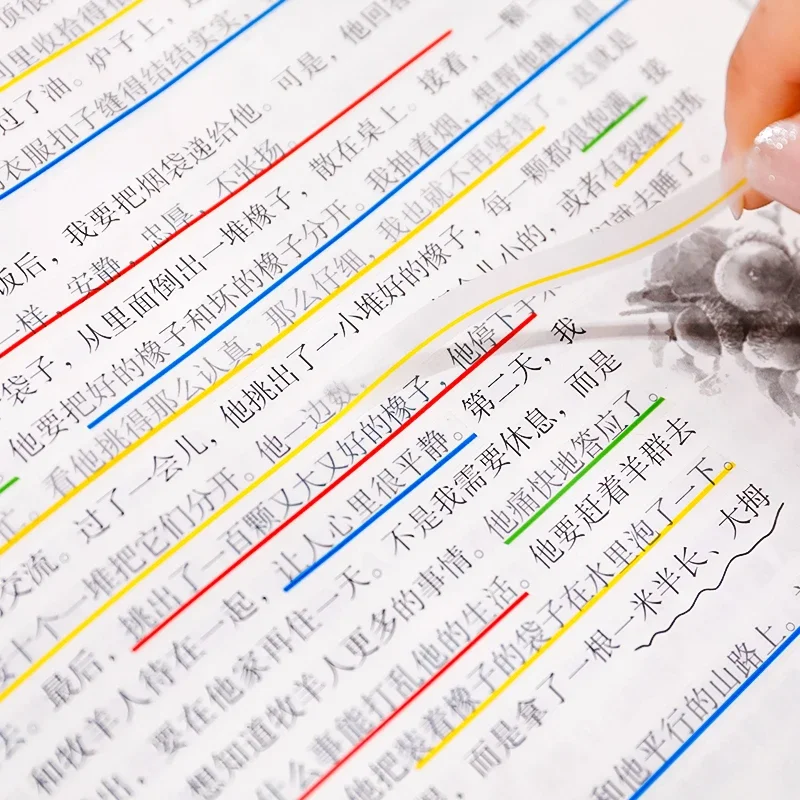 里收拾得
过了油。炉子上，
衣服扣子缝得结结实实，
饭后，我要把烟袋递给他。可是，他回答
一样，安静，忠厚，不张扬。
袋子，从里面倒出一堆橡子，散在桌上。接着，一颗一
他要把好的橡子和坏的橡子分开。我抽着烟，想帮他挑，但
看他挑得那么认真，那么仔细，我也就不再坚持了。这就是
交流。过了一会儿，他挑出了一小堆好的橡子，每一颗都很饱满。接
十个一堆把它们分开。他一边数，个儿小的，或者有裂缝的拣
最后，挑出了一百颗又大又好的橡子，他停下手 们就去睡了。
和牧羊人待在一起，让人心里很平静。第二天，我
出，要在他家再住一天。不是我需要休息，而是
想知道牧羊人更多的事情。他痛快地答应了。
什么事能打乱他的生活。他要赶着羊群去
他把装着橡子的袋子在水里泡了一下。
，而是拿了一根一米半长、大拇
和他平行的山路上。